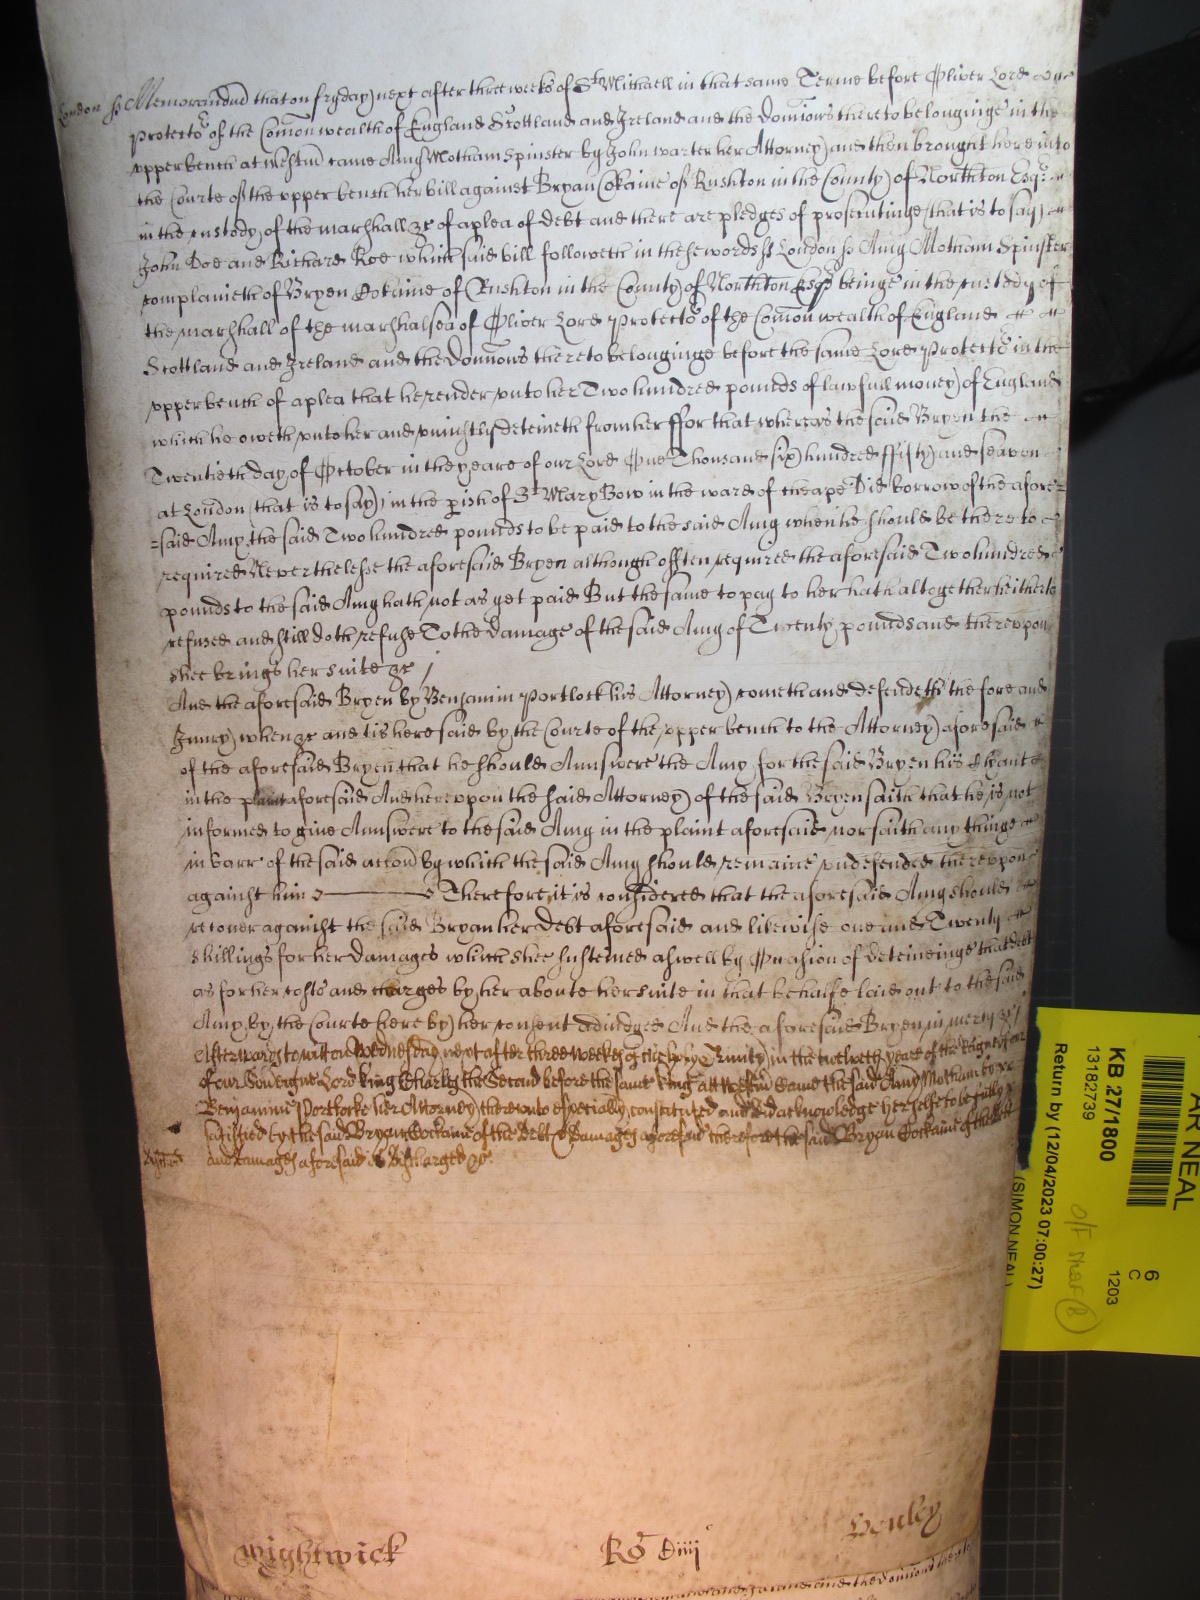 London ss Memorandud that on fryday next after three weekes of St Michaell in that same Terme before Oliver Lord
Protector of the Comonwealth of England Scottland and Ireland and the Domiõns thereto belonginge in the
upper bench at Westm̃ came Amy Motham Spinster by John Warter her Attorney and then brought here into
the Courte of the upper bench her bill against Bryan Cokaine of Rushton in the County of Northton Esqr
in the custody of the marshall &c of a plea of debt and there are pledges of prosecutinge that is to say
John Doe and Richard Roe which said bill followeth in these words ss London ss Amy Motham Spinster
complaineth of Bryen Cokaine of Rushton in the County of Northton Esqr beinge in the custody of
the marshall of the marshalsea of Oliver Lord Protector of the Comonwealth of England
Scottland and Ireland and the Domiõns thereto belonginge before the same Lord Protector in the
upper bench of a plea that he render unto her Two hundred pounds of lawfull money of England
which he oweth unto her and uniustly deteineth from her ffor that whereas the said Bryen the
Twentieth day of October in the yeare of our Lord One Thousand six hundred ffifty and seaven
at London that is to say in the pish of St Mary Bow in the ward of cheape Did borrow of the afore=
=said Amy the said Two hundred pounds to be paid to the said Amy when he should be thereto
required Neverthelesse the aforesaid Bryen although often required the aforesaid Two hundred
pounds to the said Amy hath not as yet paid But the same to pay to her hath altogether hitherto
refused and still doth refuse To the Damage of the said Amy of Twenty pounds and thereupon
shee brings her suite &c
And the aforesaid Bryen by Beniamin Portlock his Attorney cometh and defendeth the force and
Iniury when &c and tis here said by the Courte of the upper bench to the Attorney aforesaid
of the aforesaid Bryen that he should Annswere the Amy for the said Bryen his Clyant
in the plaint aforesaid And hereupon the said Attorney of the said Bryen saith that he is not
informed to give Annswere to the said Amy in the plaint aforesaid nor saith any thinge
in barr of the said accon by which the said Amy should remaine undefended thereupon
against him Therefore it is considered that the aforesaid Amy should
recover against the said Bryan her Debt aforesaid and likewise one and Twenty
shillings for her Damages which shee susteined aswell by Occasion of deteineinge that debt
as for her costs and charges by her aboute her suite in that behalfe laid out to the said
Amy by the Courte here by her consent adiudged And the aforesaid Bryen in mercy &c
Afterwards to witt on Wednesday next after three weekes of the holy Trinity in the twelveth yeare of the Reigne of our
of our Soveigne Lord King Charles the Second before the same King att Westm̃ Came the said Amy Motham by
Benjamine Portlocke her Attorney thereunto especially constituted and did acknowledge herselfe to be fully
satisfied by the said Bryan Cockaine of the debt & damages aforesaid therefore the said Bryan Cockaine of the debt
and damages aforesaid is discharged &c
Wightwick Ro Henley
AR NEAL
KB 27/1800
13182739
Return by (12/04/2023 07:00:27)
(SIMON NEAL)
6
C
1203